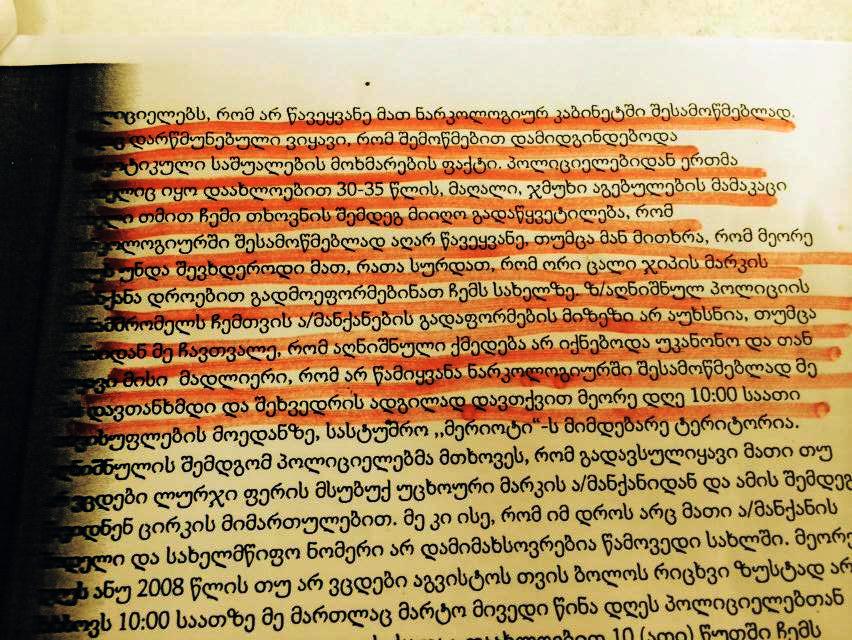 ლიციელებს, რომ არ წავეყვანე მათ ნარკოლოგიურ კაბინეტში შესამოწმებლად.
დარწმუნებული ვიყავი, რომ შემოწმებით დამიდგინდებოდა
ოტიკული საშუალების მოხმარების ფაქტი. პოლიციელებიდან ერთმა
ელიც იყო დაახლოებით 30-35 წლის, მაღალი, ჯმუხი აგებულების მამაკაცი
თმით ჩემი თხოვნის შემდეგ მიიღო გადაწყვეტილება, რომ
კოლოგიურში შესამოწმებლად აღარ წავეყვანე, თუმცა მან მითხრა, რომ მეორე
უნდა შევხდეროდი მათ, რათა სურდათ, რომ ორი ცალი ჯიპის მარკის
ანქანა დროებით გადმოეფორმებინათ ჩემს სახელზე. ზ/აღნიშნულ პოლიციის
ნამშრომელს ჩემთვის ა/მანქანების გადაფორმების მიზეზი არ აუხსნია, თუმცა
იდან მე ჩავთვალე, რომ აღნიშნული ქმედება არ იქნებოდა უკანონო და თან
ავი მისი მადლიერი, რომ არ წამიყვანა ნარკოლოგიურში შესამოწმებლად მე
დავთანხმდი და შეხვედრის ადგილად დავთქვით მეორე დღე 10:00 საათი
ვისუფლების მოედანზე, სასტუმრო ,,მერიოტი“-ს მიმდებარე ტერიტორია.
ღნიშნულის შემდგომ პოლიციელებმა მთხოვეს, რომ გადავსულიყავი მათი თუ
ვცდები ლურჯი ფერის მსუბუქ უცხოური მარკის ა/მანქანიდან და ამის შემდეგ
იდნენ ცირკის მიმართულებით. მე კი ისე, რომ იმ დროს არც მათი ა/მანქანის
დელი და სახელმწიფო ნომერი არ დამიმახსოვრებია წამოვედი სახლში. მეორე
დღეს ანუ 2008 წლის თუ არ ვცდები აგვისტოს თვის ბოლოს რიცხვი ზუსტად არ
ხსოვს 10:00 საათზე მე მართლაც მარტო მივედი წინა დღეს პოლიციელებთან
დაახლოებით 10 (ათი) წუთში ჩემს